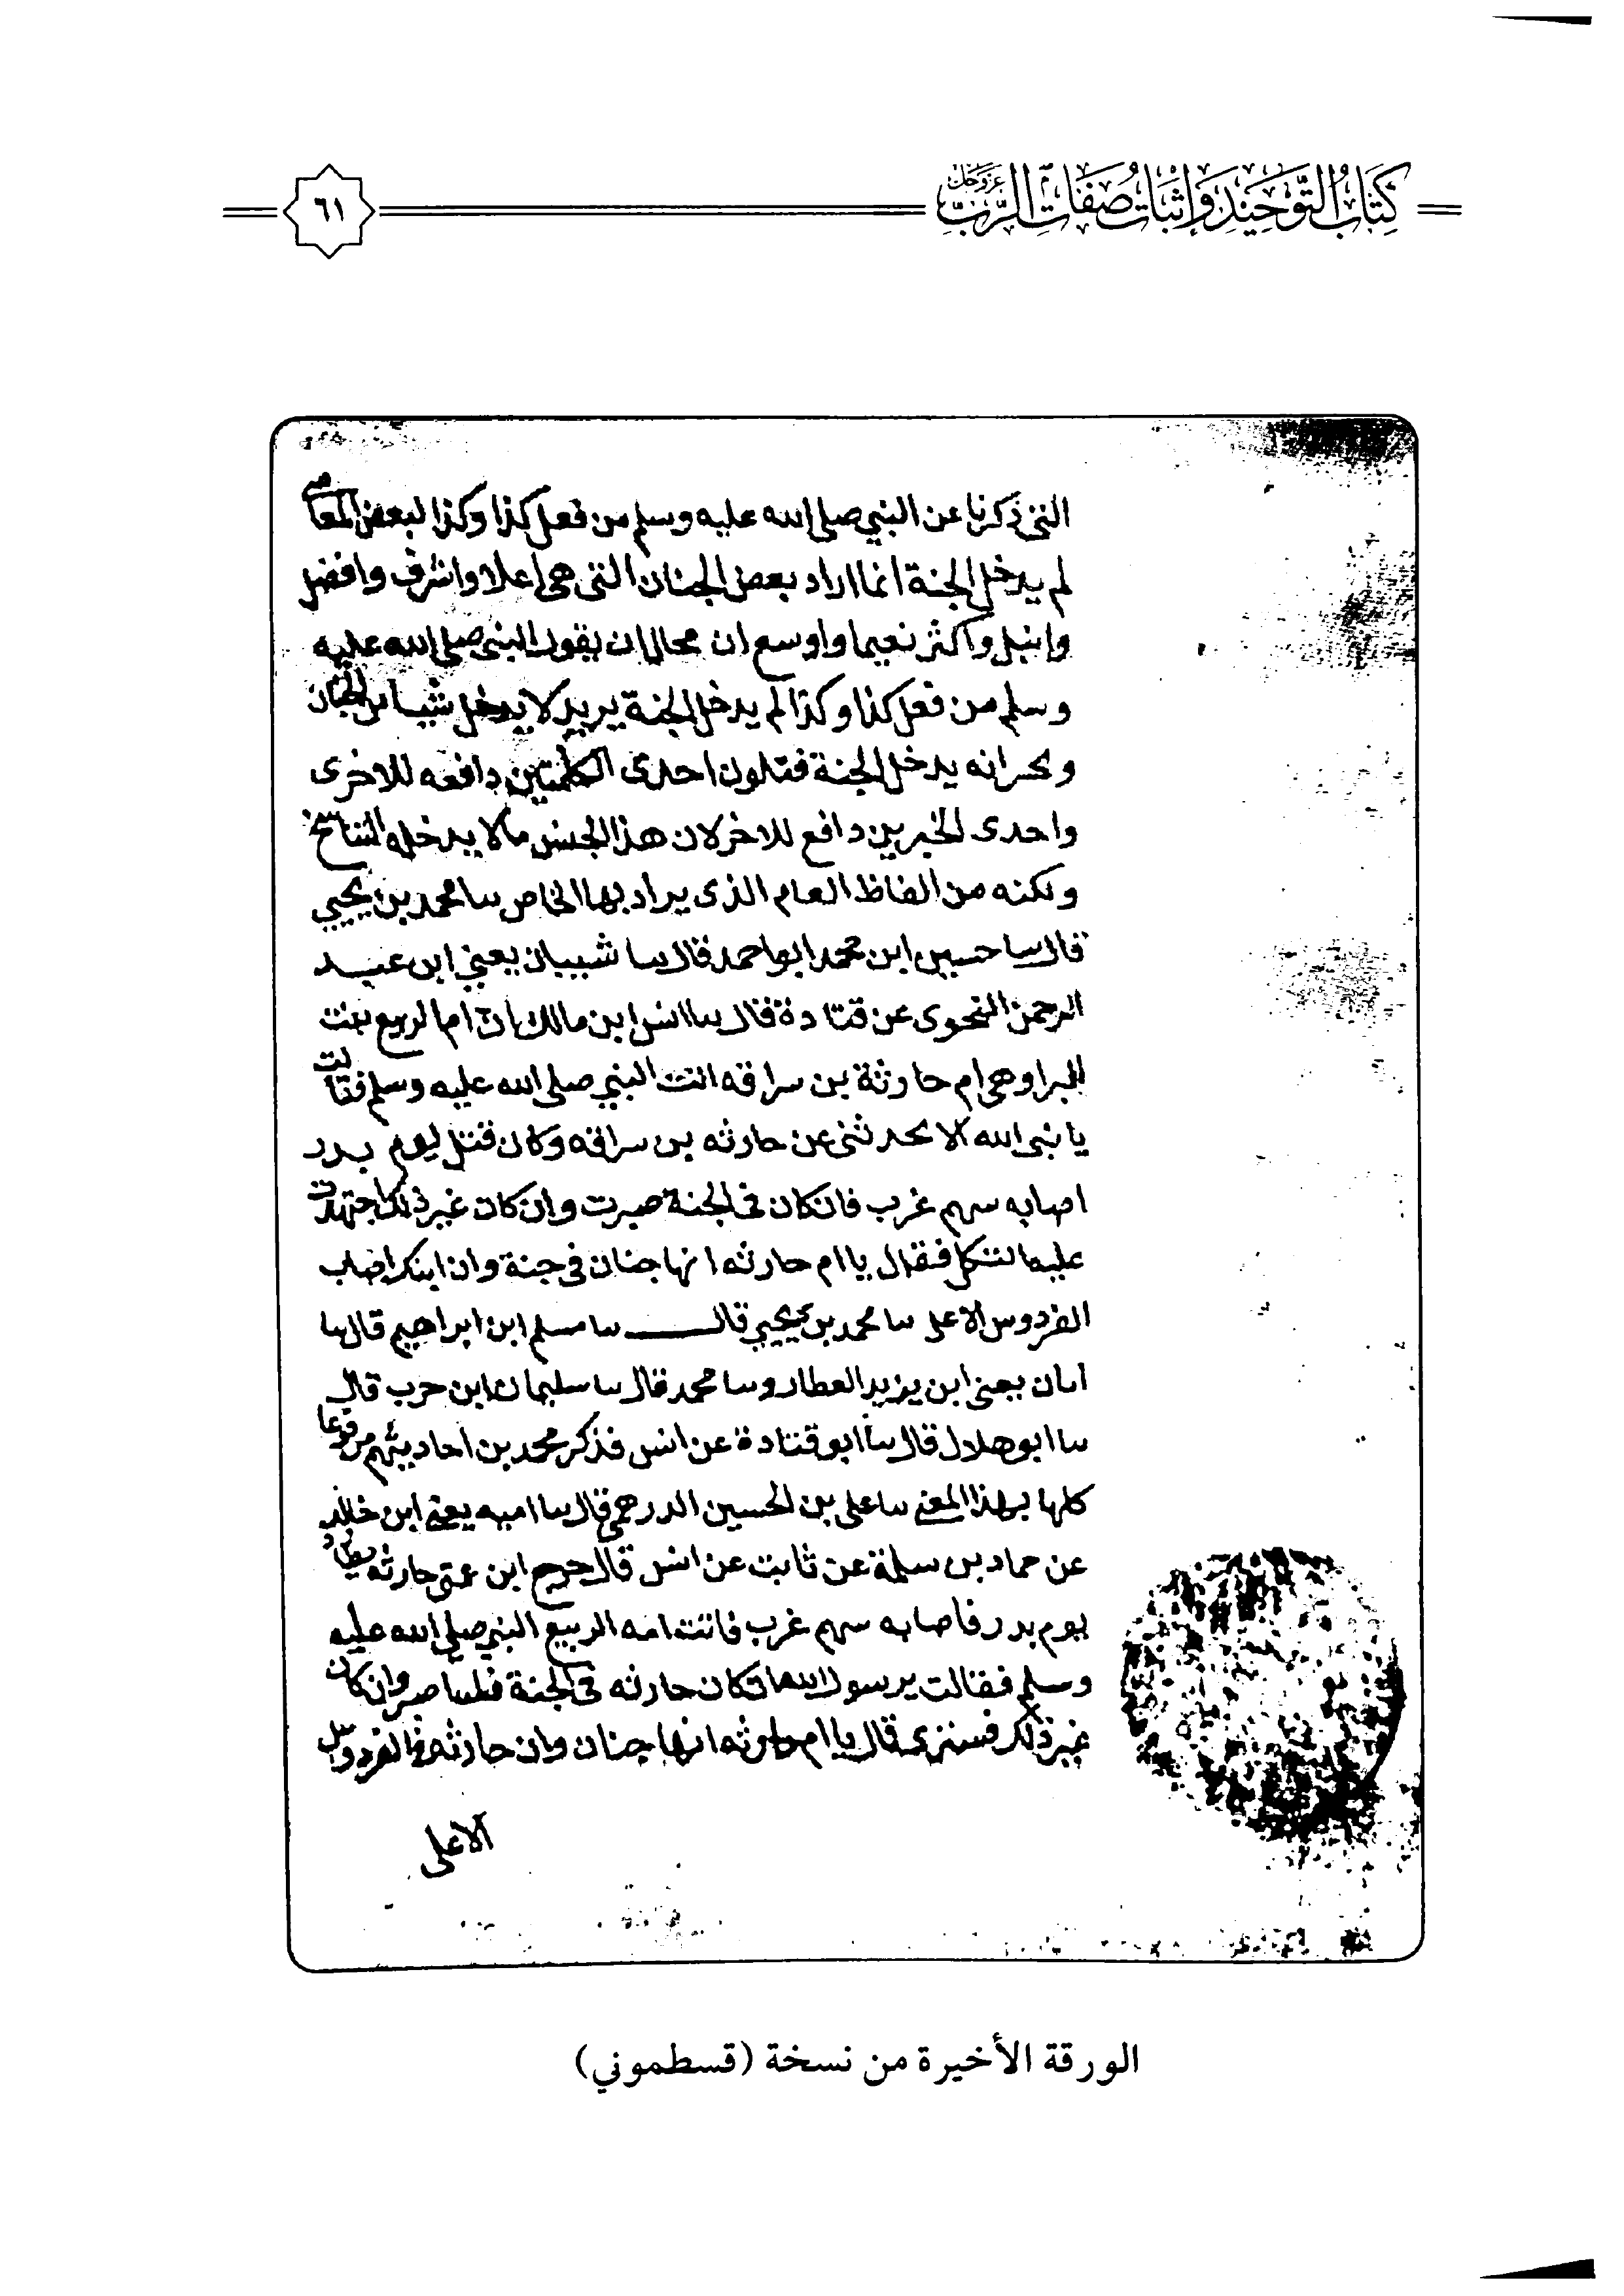 كتاب التوحيد وإثبات صفات الرب عز وجل
٦١
التى ذكرنا عن النبي صلى الله عليه وسلم من فعل كذا وكذا لبعض المعاصى
لم يدخل الجنة انما اراد بعض الجنان التى هى اعلا واشرف وافضل
وانبل واكثر نعيما واوسع ان محالا ان يقول النبى صلى الله عليه
وسلم من فعل كذا وكذا لم يدخل الجنة يريد لا يدخل شيا من الجنان
ويخبر انه يدخل الجنة فتكون احدى الكلمتين دافعه للاخرى
واحدى الخبرين دافع للاخر لان هذا الجنس مالا يدخله التناسخ
ولكنه من الفاظ العام الذى يراد بها الخاص سا محمد بن يحيي
قال سا حسين ابن محمد ابو احمد قال سا شيبان يعني ابن عبد
الرحمن النحوى عن قتادة قال سا انس ابن مالك ان ام الربيع بنت
البرا وهى ام حارثة بن سراقه اتت النبي صلى الله عليه وسلم فقالت
يا نبى الله الا تحدثنى عن حارثه بن سراقه وكان قتل يوم بدر
اصابه سهم غرب فان كان فى الجنة صبرت وان كان غير ذلك اجتهدت
عليه الثكل فقال يا ام حارثه انها جنان فى جنة وان ابنك اصاب
الفردوس الاعلى سا محمد بن يحيي قال سا مسلم ابن ابراهيم قال سا
ابان يعنى ابن يزيد العطار وسا محمد قال سا سليمان ابن حرب قال
سا ابو هلال قال سا ابو قتادة عن انس فذكر محمد بن احاديثهم مرفوعا
كلها بهذا المعنى سا على بن الحسين الدرهمى قال سا اميه يعنى ابن خالد
عن حماد بن سلمة عن ثابت عن انس قال خرج ابن عمتى حارثه
يوم بدر فاصابه سهم غرب فاتت امه الربيع النبي صلى الله عليه
وسلم فقالت يرسول الله ان كان حارثه فى الجنة فلسا صبر وان كان
غير ذلك فسترى قال يا ام حارثه انها جنان وان حارثه فى الفردوس
الاعلى
الورقة الأخيرة من نسخة (قسطموني)